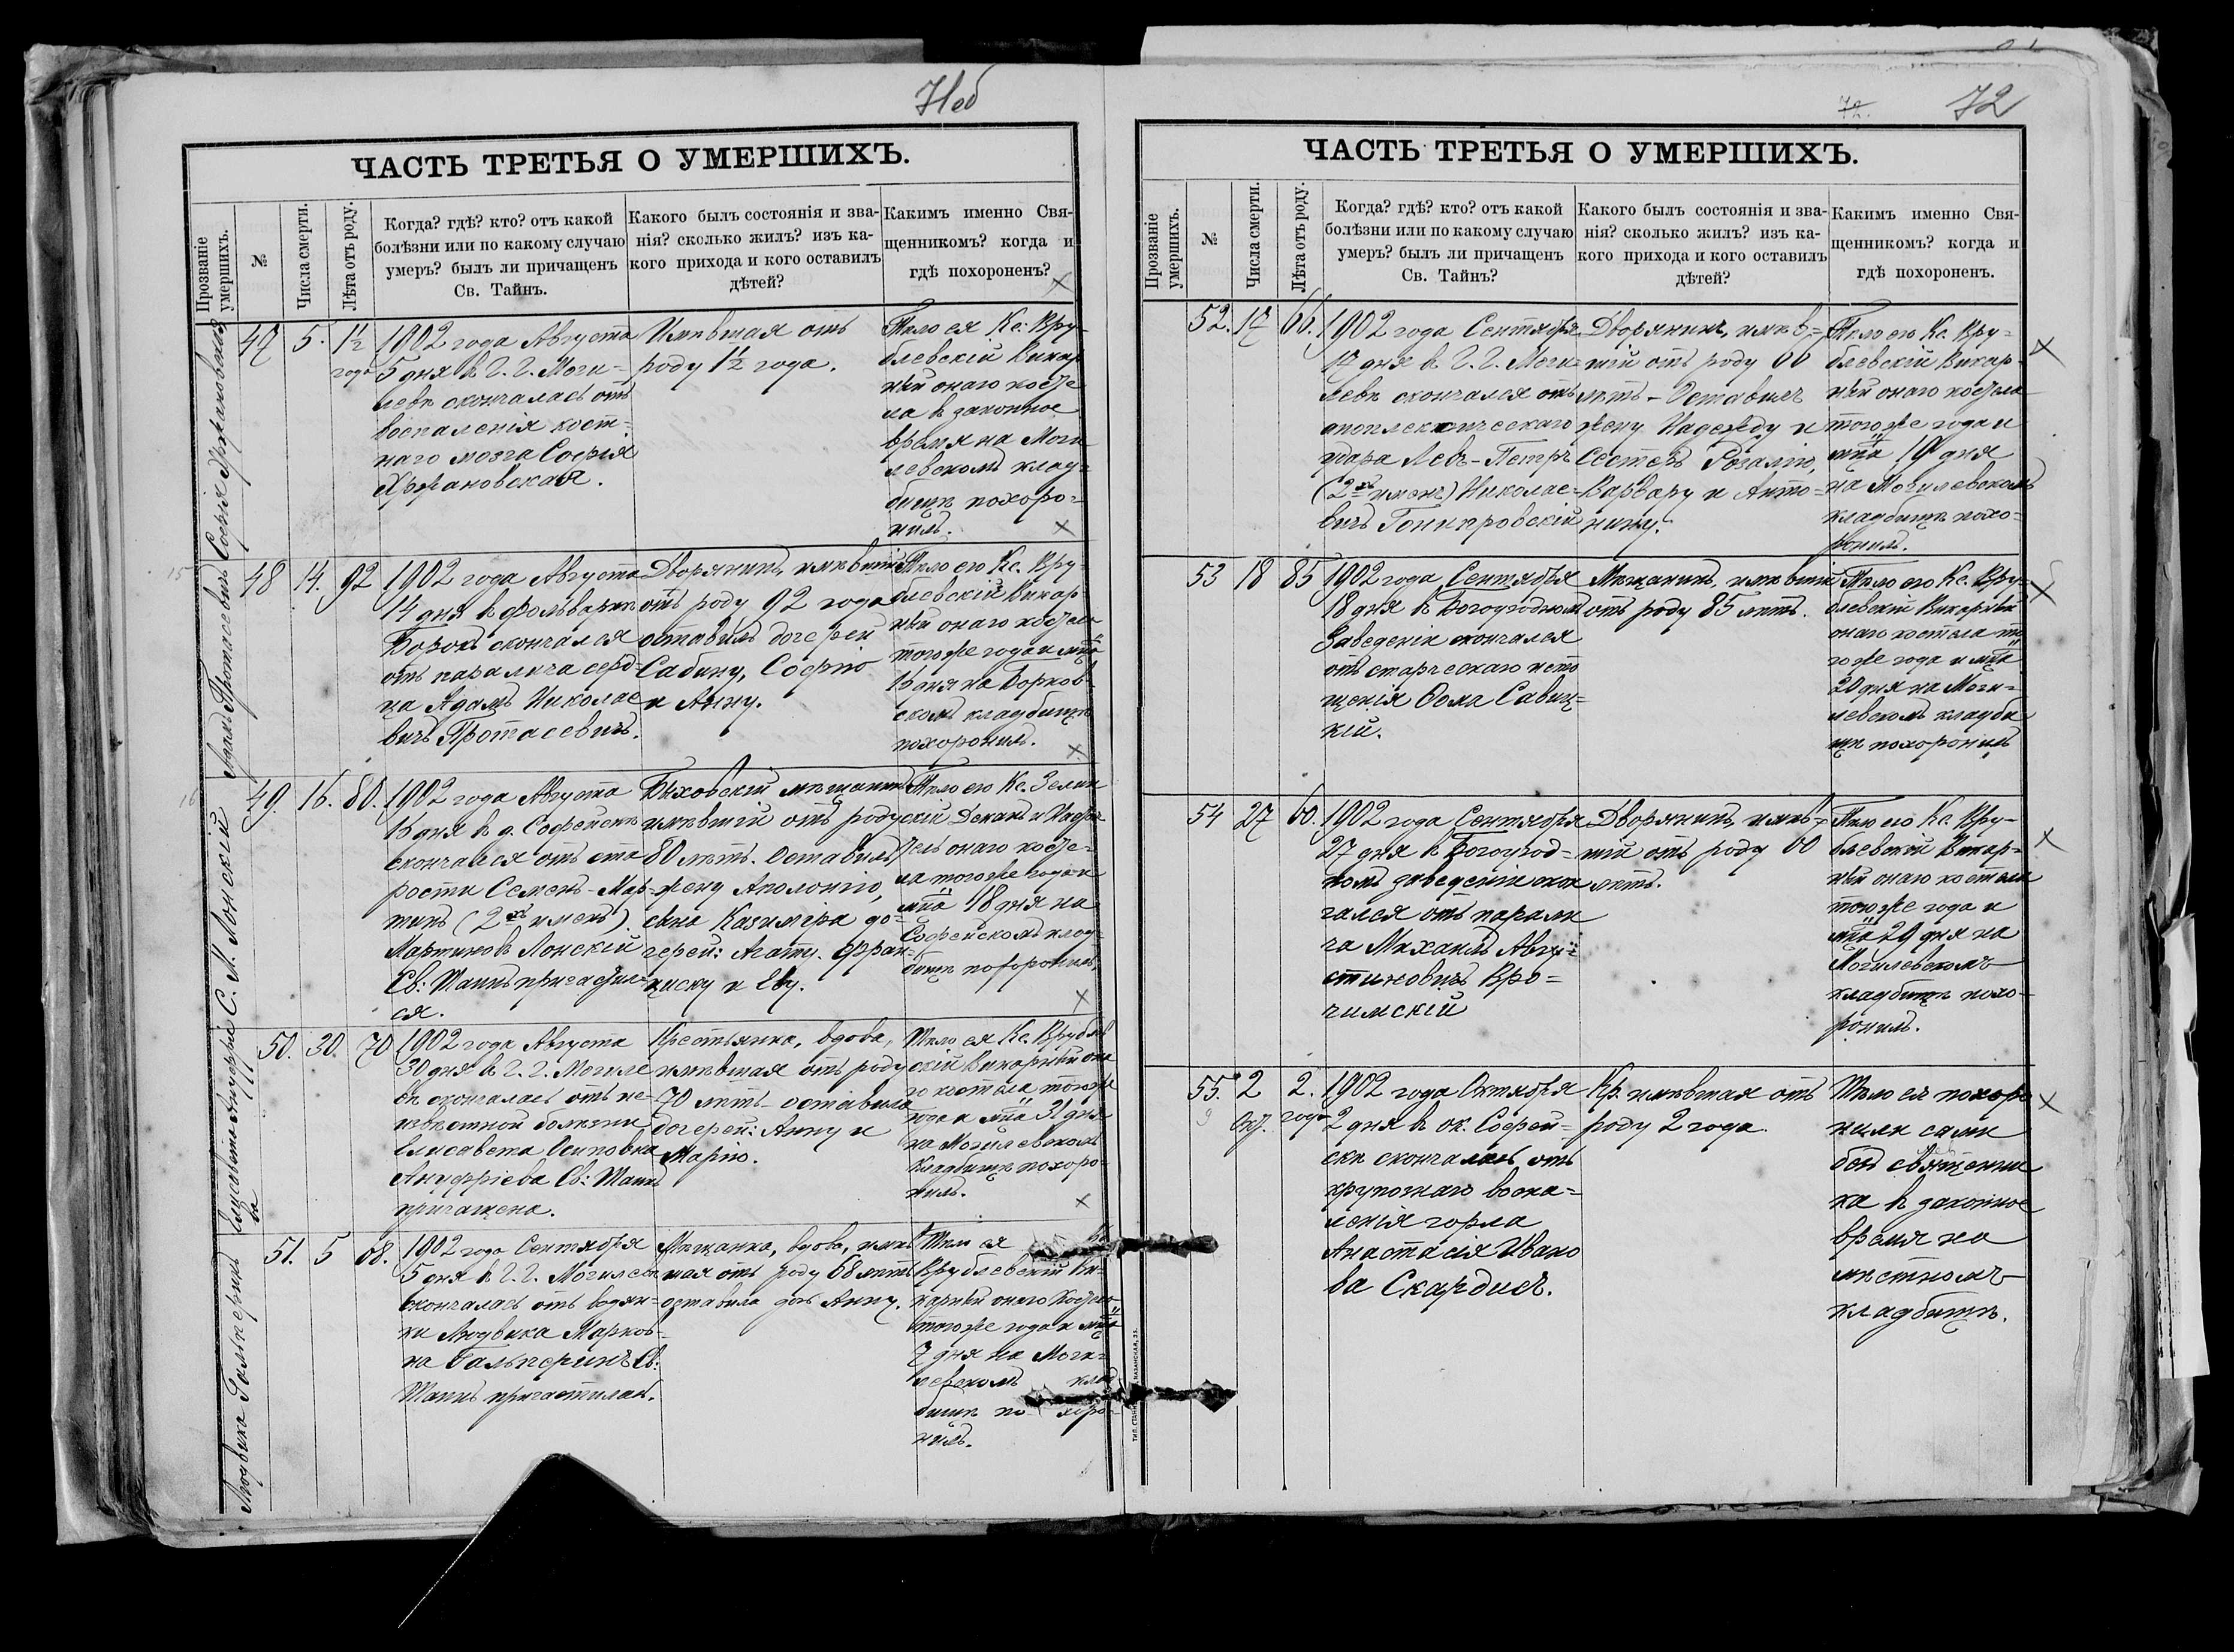 71об
ЧАСТЬ ТРЕТЬЯ О УМЕРШИХЪ.
Прозваніе умершихъ.
№
Числа смерти.
Лѣта отъ роду.
Когда? гдѣ? кто? отъ какой
болѣзни или по какому случаю
умеръ? былъ ли причащенъ
Св. Тайнъ.
Какого былъ состоянія и зва-
нія? сколько жилъ? изъ ка-
кого прихода и кого оставилъ
дѣтей?
Какимъ именно Свя-
щенникомъ? когда и
гдѣ похороненъ?
Софія Хржановская
47
5.
1½
года
1902 года Августа
5 дня в Г. Г. Моги=
левѣ скончалась отъ
воспаленія кост=
наго мозга Софія
Хржановская.
Имѣвшая отъ
роду 1½ года.
Тѣло ея Кс. Вру-
блевскій Викар
ный онаго косте
ла в законное
время на Моги
левскомъ клад-
бищѣ похоро=
нилъ.
Адамъ Протасевичъ
48
14.
92
1902 года Августа
14 дня в фольваркѣ
Борокъ скончался
отъ паралича серд-
ца Адамъ Николае
вичъ Протасевичъ.
Дворянинъ, имѣвшій
отъ роду 92 года
оставилъ дочерей
Сабину, Софію
и Анну.
Тѣло его Кс. Вру-
блевскій Викар-
ный онаго костела
тогоже года и мца
16 дня на Борков-
скомъ кладбищѣ
похоронилъ.
С. М. Лонскій
49.
16.
80.
1902 года Августа
16 дня в д. Софейскѣ
скончался отъ ста
рости Семенъ-Мар-
тинъ (2хъ именъ)
Мартиновъ Лонскій
Св: Таинъ причастил-
ся.
Быховскій мѣщанинъ
имѣвшій отъ роду
80 лѣтъ. Оставилъ
жену Аполонію,
сына Казиміра до-
черей: Агату. Фран-
циску и Еву.
Тѣло его Кс. Зелин
скій Деканъ и Насто-
тель онаго косте=
ла тогоже года и
мца 18 дня на
Софейскомъ клад-
бищѣ похоронилъ.
Елисавета Ануфріе
ва
50.
30.
70
1902 года Августа
30 дня в Г. Г. Могиле
вѣ скончалась отъ не-
извѣстной болѣзни
Елисавета Осиповна
Ануфріева Св: Таинъ
причащена.
Крестьянка, вдова,
имѣвшая отъ роду
70 лѣтъ - оставила
дочерей: Анну и
Марію.
Тѣло ея Кс. Врублев
скій Викарный она
го костела тогоже
года и мца 31 дня
на Могилевскомъ
кладбищѣ похоро-
нилъ.
Людвика Гальперинъ
51.
5
68.
1902 года Сентября
5 дня в Г. Г. Могилевѣ
скончалась отъ водян-
ки Людвика Марков-
на Гальперинъ Св:
Таинъ причастилась.
Мѣщанка, вдова, имѣв
шая отъ роду 68 лѣтъ
оставила дочь Анну.
Тѣло ея
Врублевскій Ви-
карный онаго Костела
тогоже года и мца
7 дня на Моги-
левскомъ клад
бищѣ по- хоро-
нилъ.
72
72.
ЧАСТЬ ТРЕТЬЯ О УМЕРШИХЪ.
Прозваніе умершихъ.
№
Числа смерти.
Лѣта отъ роду.
Когда? гдѣ? кто? отъ какой
болѣзни или по какому случаю
умеръ? былъ ли причащенъ
Св. Тайнъ?
Какого былъ состоянія и зва-
нія? сколько жилъ? изъ ка-
кого прихода и кого оставилъ
дѣтей?
Какимъ именно Свя-
щенникомъ? когда и
гдѣ похороненъ.
52.
17
66.
1902 года Сентября
17 дня в Г. Г. Моги-
левѣ скончался отъ
апоплексическаго
удара Левъ-Петръ
(2хъ именъ) Николае-
вичъ
Дворянинъ, имѣв-
шій отъ роду 66
лѣтъ - Оставилъ
жену Надежду и
сестеръ Розалію,
Варвару и Анто-
нину.
Тѣло его Кс. Вру-
блевскій Викар-
ный онаго костела
тогоже года и
мца 19 дня
на Могилевскомъ
кладбищѣ похо-
ронилъ.
53
18
85
1902 года Сентября
18 дня в Богоугодномъ
Заведеніи скончался
отъ старческаго исто
щенія Ѳома Савиц=
кій.
Мѣщанинъ, имѣвшій
отъ роду 85 лѣтъ.
Тѣло его Кс. Вру-
блевскій Викарный
онаго костела то
гоже года и мца
20 дня на Моги-
левскомъ кладби
щѣ похоронилъ
54
27
60.
1902 года Сентября
27 дня в Богоугод=
номъ заведеніи скон
чался отъ парали
ча Михаилъ Авгу-
стиновичъ Вро=
чимскій
Дворянинъ, имѣв-
шій отъ роду 60
лѣтъ.
Тѣло его Кс. Вру-
блевскій Викар-
ный онаго костела
тогоже года и
мца 29 дня на
Могилевскомъ
кладбищѣ похо-
ронилъ.
55.
2
Окт.
2.
года
1902 года Октября
2 дня в ок. Софей-
скѣ скончалась отъ
крупознаго воспа=
ленія горла
Анастасія Ивано
ва Скардись.
Кр. имѣвшая отъ
роду 2 года.
Тѣло ея похоро
нили сами
безъ священни
ка в законное
время на
мѣстномъ
кладбищѣ.